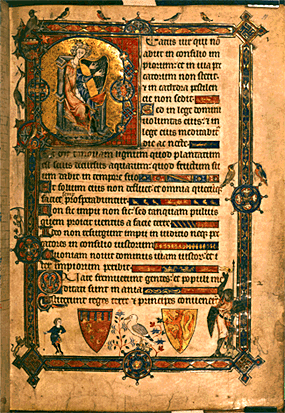 Eatus uir qui no
abiit in consilio im
piorum: et in uia pec
catorum non stetit
et in cathedra pestilen
cie non sedit
Sed in lege domini
uoluntas eius: et in
lege eius meditabit
die ac nocte
Et erit tanquam lignum quod plantatum
est secus decursus aquarum: quod fructum su
um dabit in tempore suo
Et folium eius non defluet: et omnia
faciet prosperabuntur
Non sic impii non sic: sed tanquam puluis
quem proicit uentus a facie terre
Ideo non resurgunt impii in iudicio: neq pec
catores in consilio iustorum
Quoniam nouit dominus uiam iustorum: et i
ter impiorum peribit
Quare fremuerunt gentes: et populi me
ditati sunt inania
Astiterunt reges terre et principes conuener